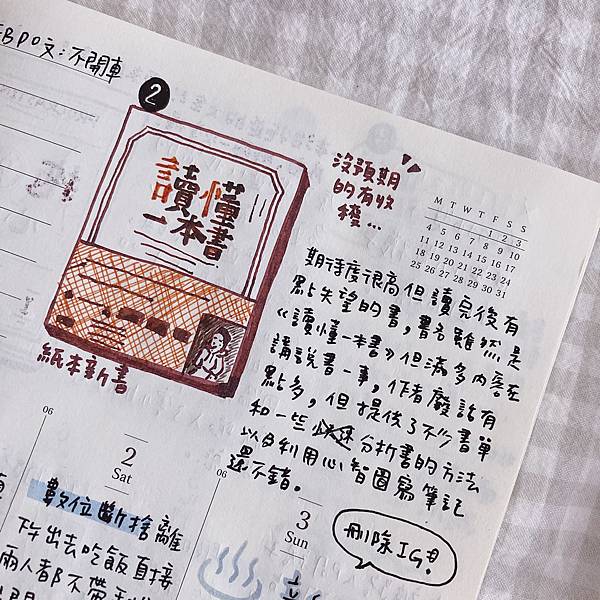 BPO文：不開車
2
讀懂
一本書
紙本新書
沒預期
的有收
穫…
M T W T F S S
1 2 3
4 5 6 7 8 9 10
11 12 13 14 15 16 17
18 19 20 21 22 23 24
25 26 27 28 29 30 31
期待度很高但讀完後有
點失望的書，書名雖然是
《讀懂一本書》但滿多內容在
講說書一事，作者廢話有
點多，但提供了不少書單
和一些 分析書的方法
以及利用心智圖寫筆記
還不錯。
06
2
Sat
數位斷捨離
出去吃飯直接
兩人都不帶手
06
3
Sun
刪除IG！